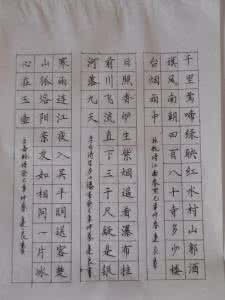 千里莺啼绿映红水村山郭酒
旗风南朝四百八十寺多少楼
台烟雨中
杜牧诗江南春
日照香炉生紫烟遥看瀑布挂
前川飞流直下三千尺疑是银
河落九天
寒雨连江夜入吴平明送客楚
山孤洛阳亲友如相问一片冰
心在玉壶